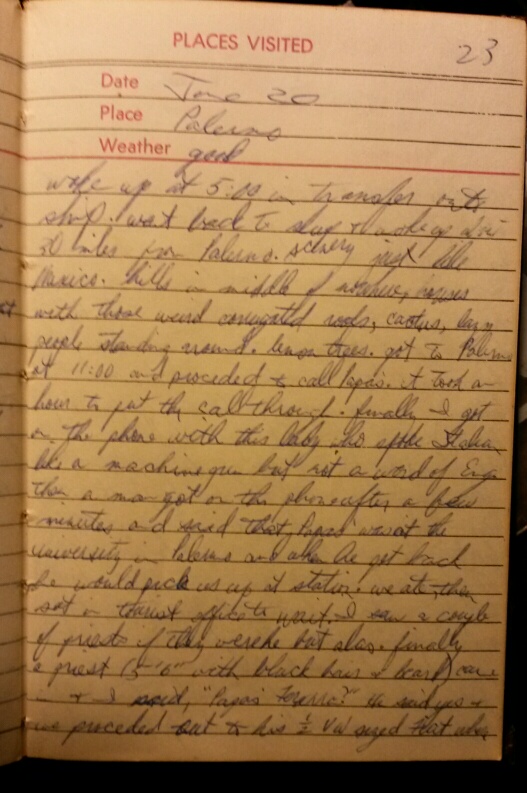 PLACES VISITED
23
Date June 20
Place Palermo
Weather good
woke up at 5:00 in transfer onto
ship. went back to sleep & woke up
30 miles from Palermo. scenery just like
Mexico. hills in middle of nowhere, houses
with those weird corrugated roofs, cactus, lazy
people standing around. lemon trees. got to Palermo
at 11:00 and proceded to call Papas. it took an
hour to put the call through. finally I got
on the phone with this lady who spoke Italian
like a machine gun but not a word of Eng.
then a man got on the phone after a few
minutes and said that Papas was at the
university in Palermo and when he got back
he would pick us up at station. we ate, then
sat in tourist office to wait. I saw a couple
of priests if they were he but alas. finally
a priest (5'6" with black hair & beard) came
in & I said, "Papas Ferarro?" He said yes &
we proceded out to his ½ VW sized Fiat